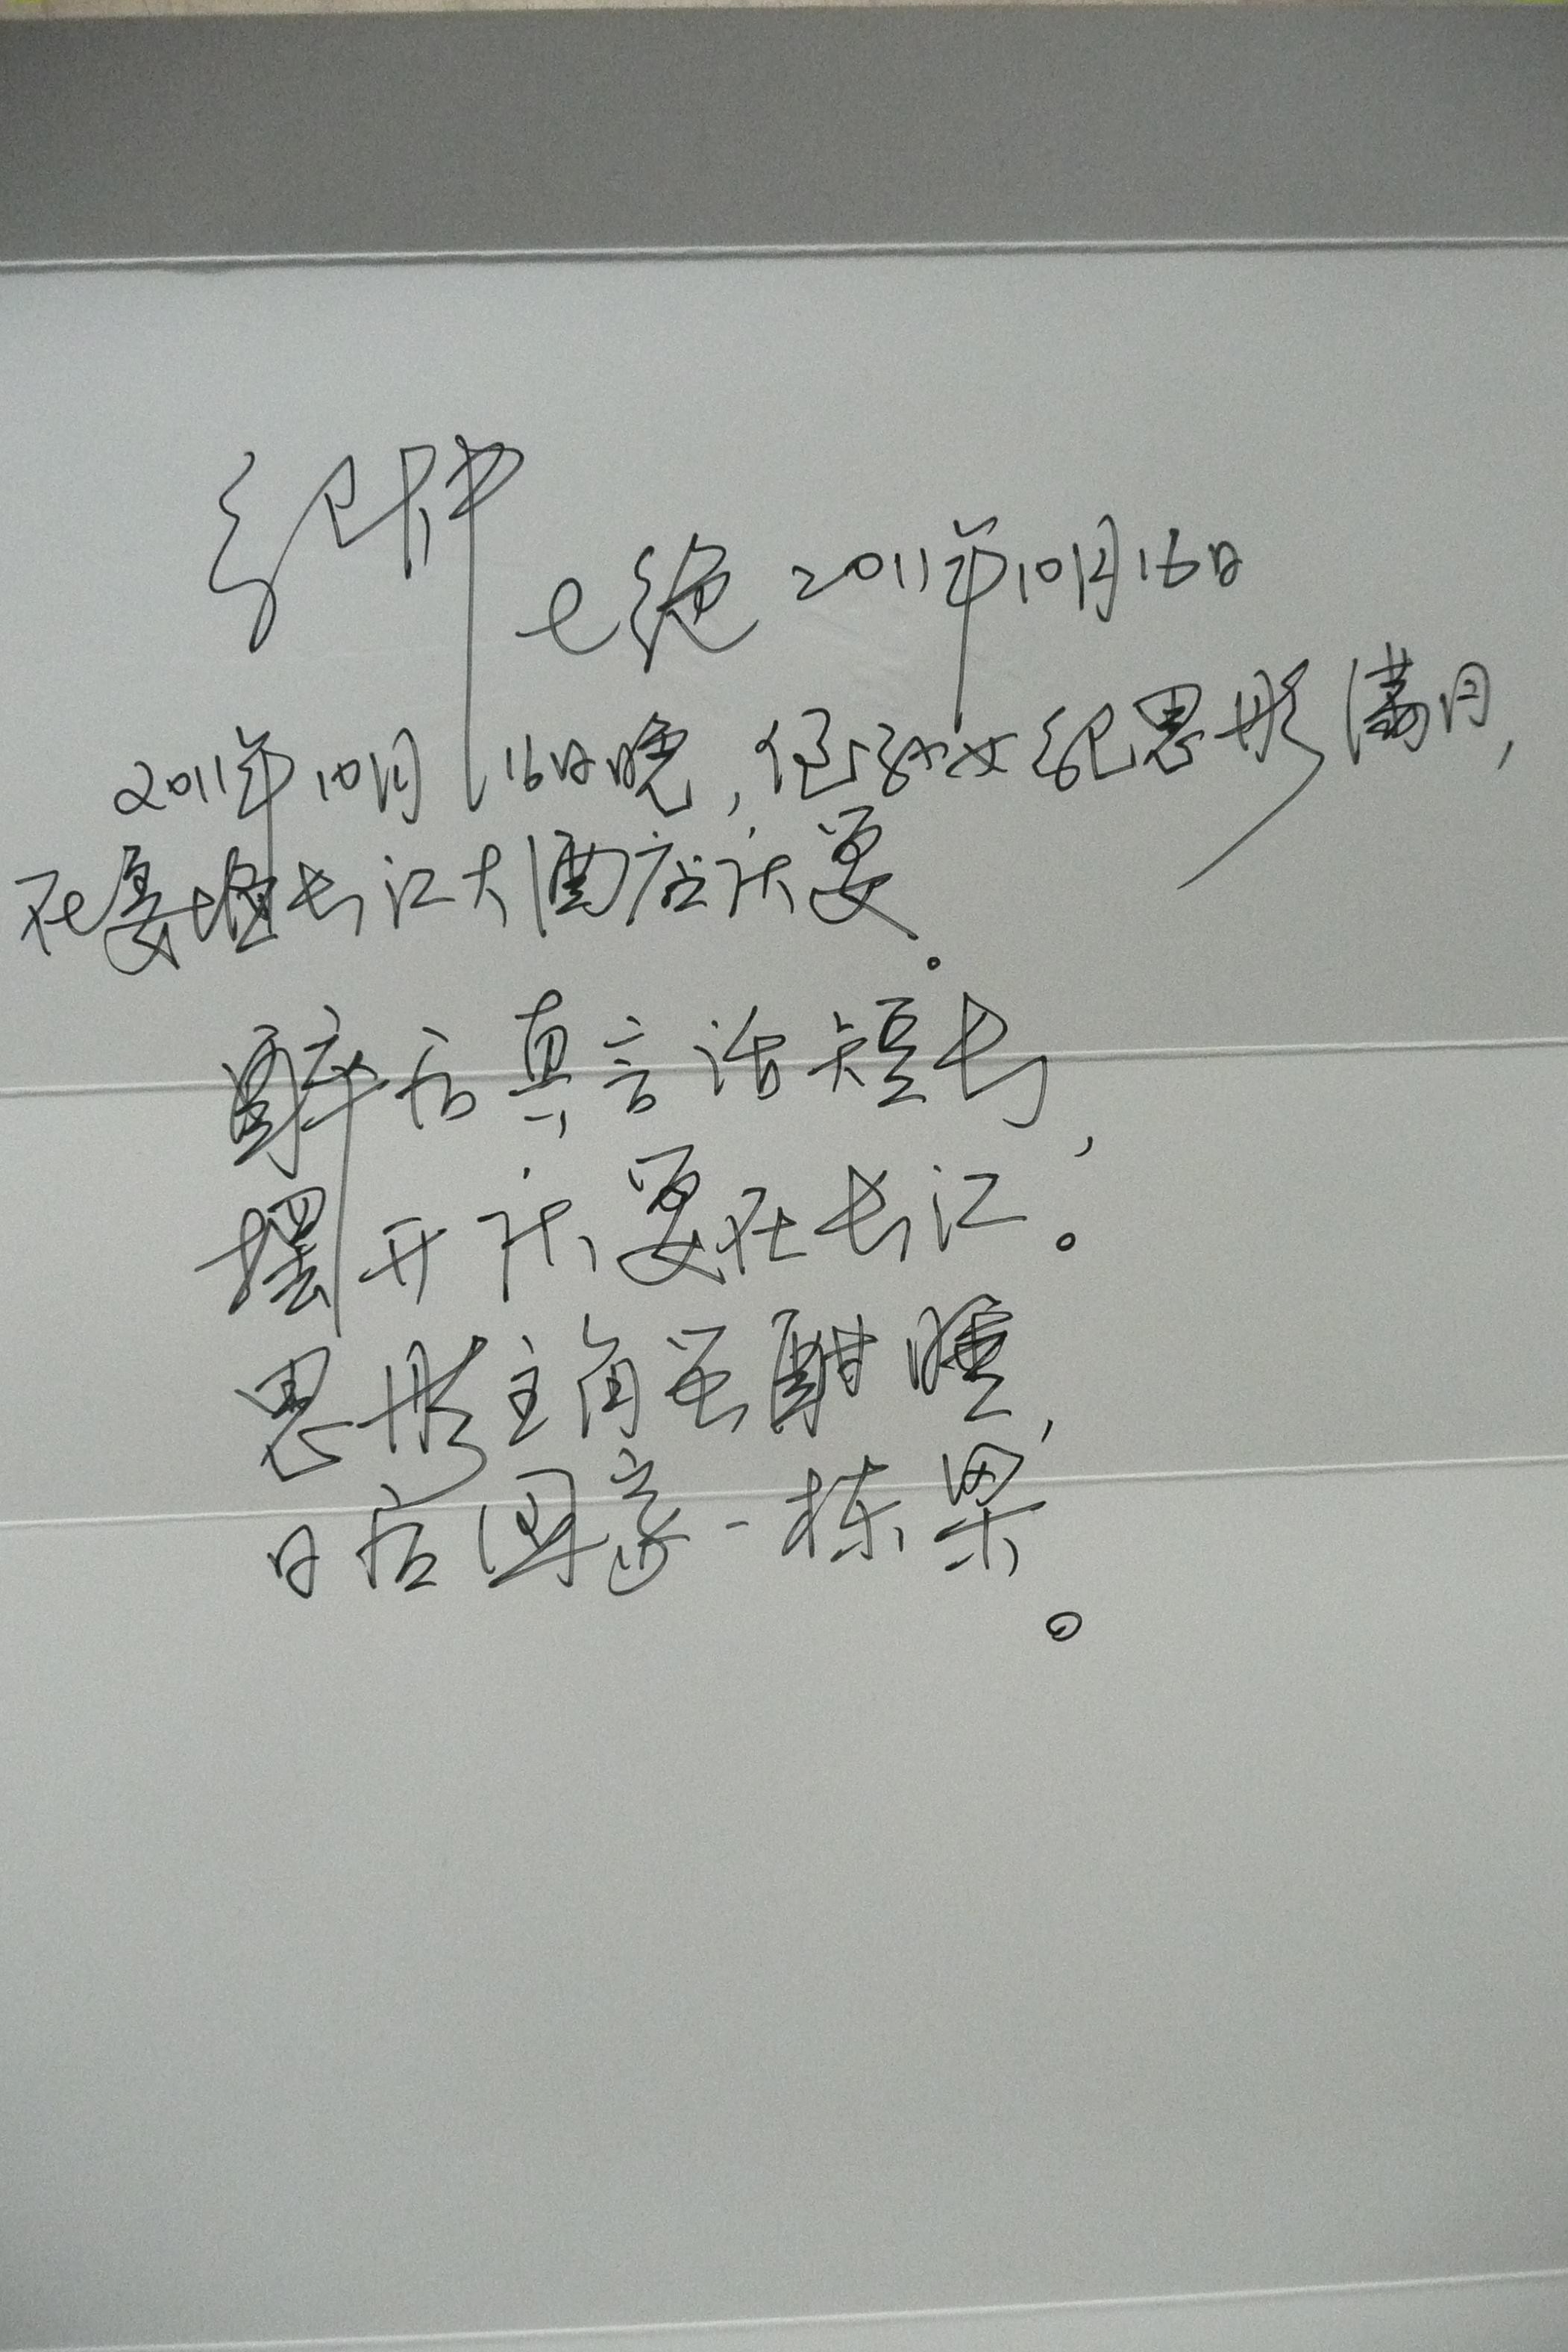 纪神
七绝 2011年10月16日
2011年10月16日晚,侄孙女纪思彤满月,
在姜堰长江大酒店庆宴.
醉后真言话短长,
摆开庆宴在长江。
思彤主角虽酣睡,
日后国家一栋梁。